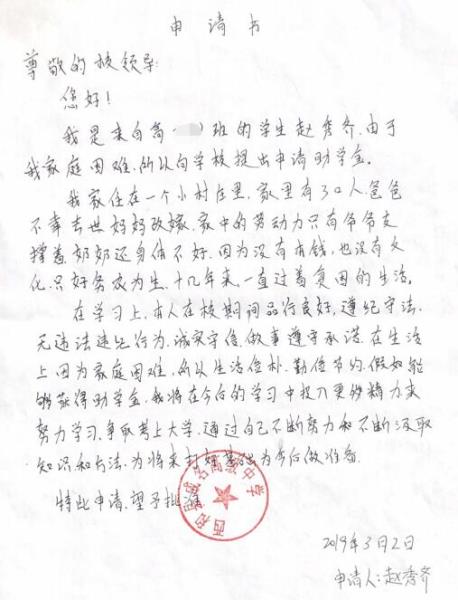 申请书
尊敬的校领导:
您好!
我是来自高( )班的学生赵秀齐.由于
我家庭困难,所以向学校提出申请助学金。
我家住在一个小村庄里,家里有3口人,爸爸
不幸去世妈妈改嫁.家中的劳动力只有爷爷支
撑着奶奶还身体不好.因为没有本钱,也没有文
化.只好务农为生.十几年来一直过着贫困的生活.
在学习上,本人在校期间品行良好,遵纪守法.
无违法违纪行为,诚实守信,做事遵守承诺.在生活
上因为家庭困难,所以生活俭朴.勤俭节约.假如能
够获得助学金,我将在今后的学习中投入更多精力来
努力学习.争取考上大学.通过自己不断努力和不断汲取
知识和方法.为将来打好基础为今后做准备.
特此申请.望予批准
中学
2019年3月2日
申请人:赵秀齐